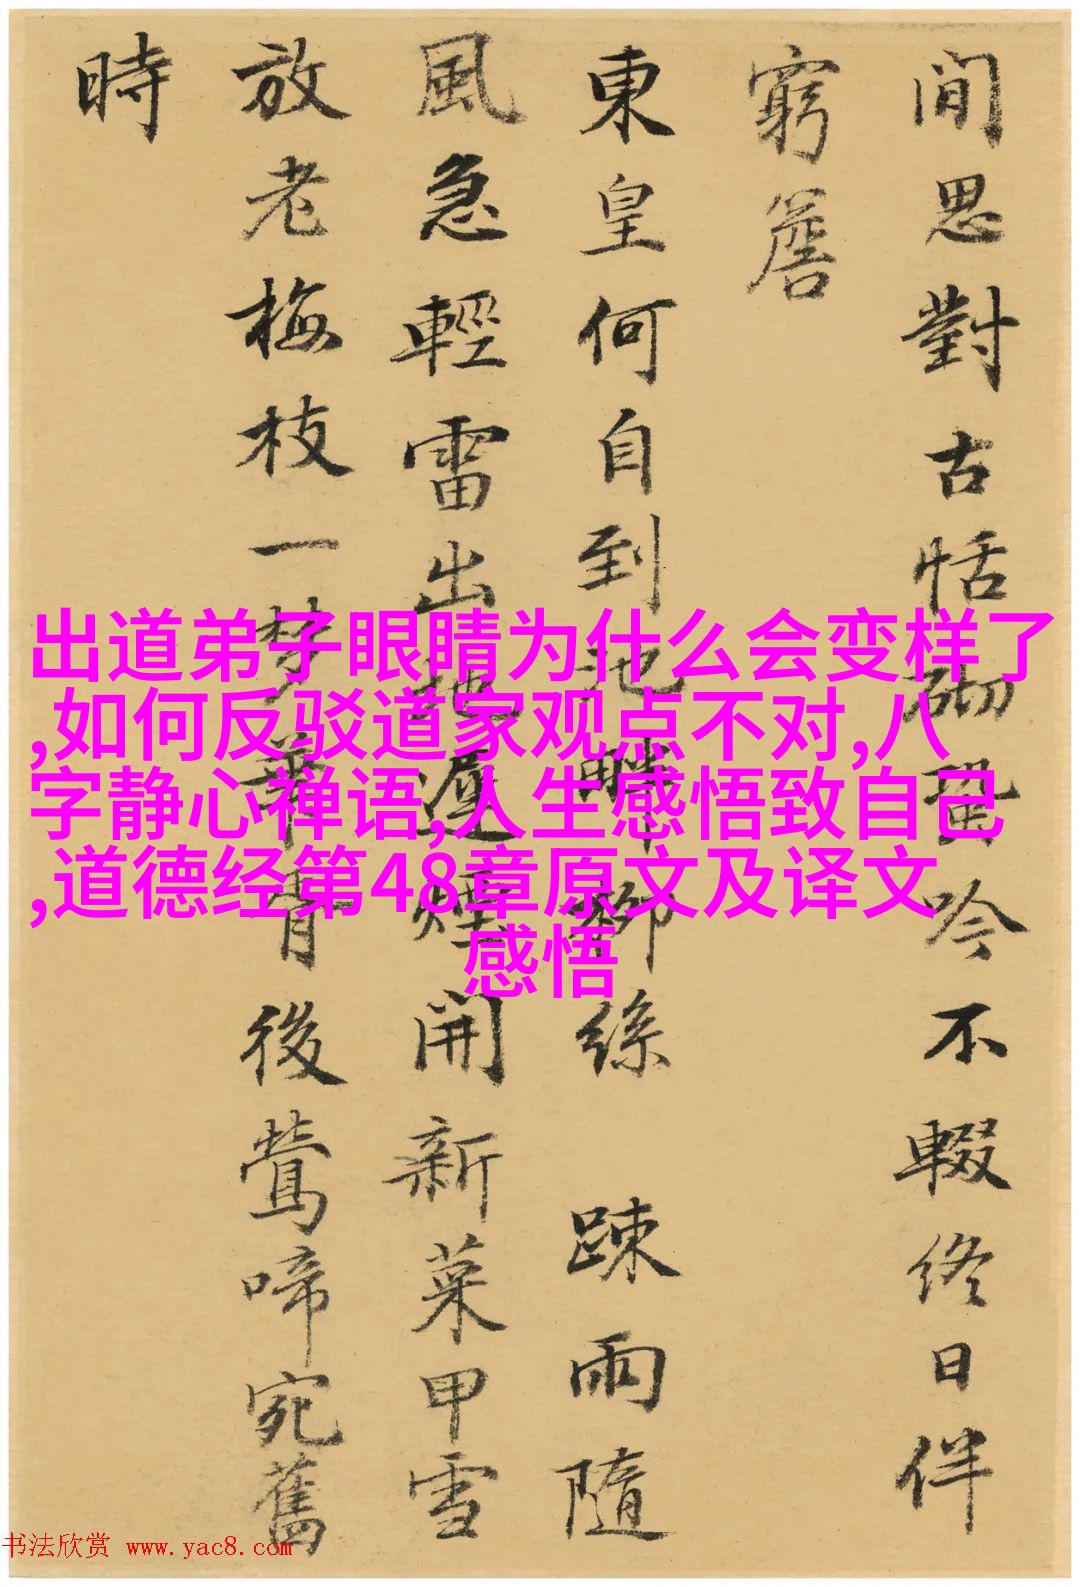 閒思對古恬砌蛩吟不輟終日伴
窮簷
東皇何自到池畔柳絲 踈雨隨
風急輕雷出地遲煙開新菜甲雪
放老梅枝一夢華胥後鶯啼宛舊
時
出道弟子眼睛为什么会变样了
,如何反驳道家观点不对,八
字静心禅语,人生感悟致自己
,道德经第48章原文及译文
感悟
书法欣赏 www.yac8.com